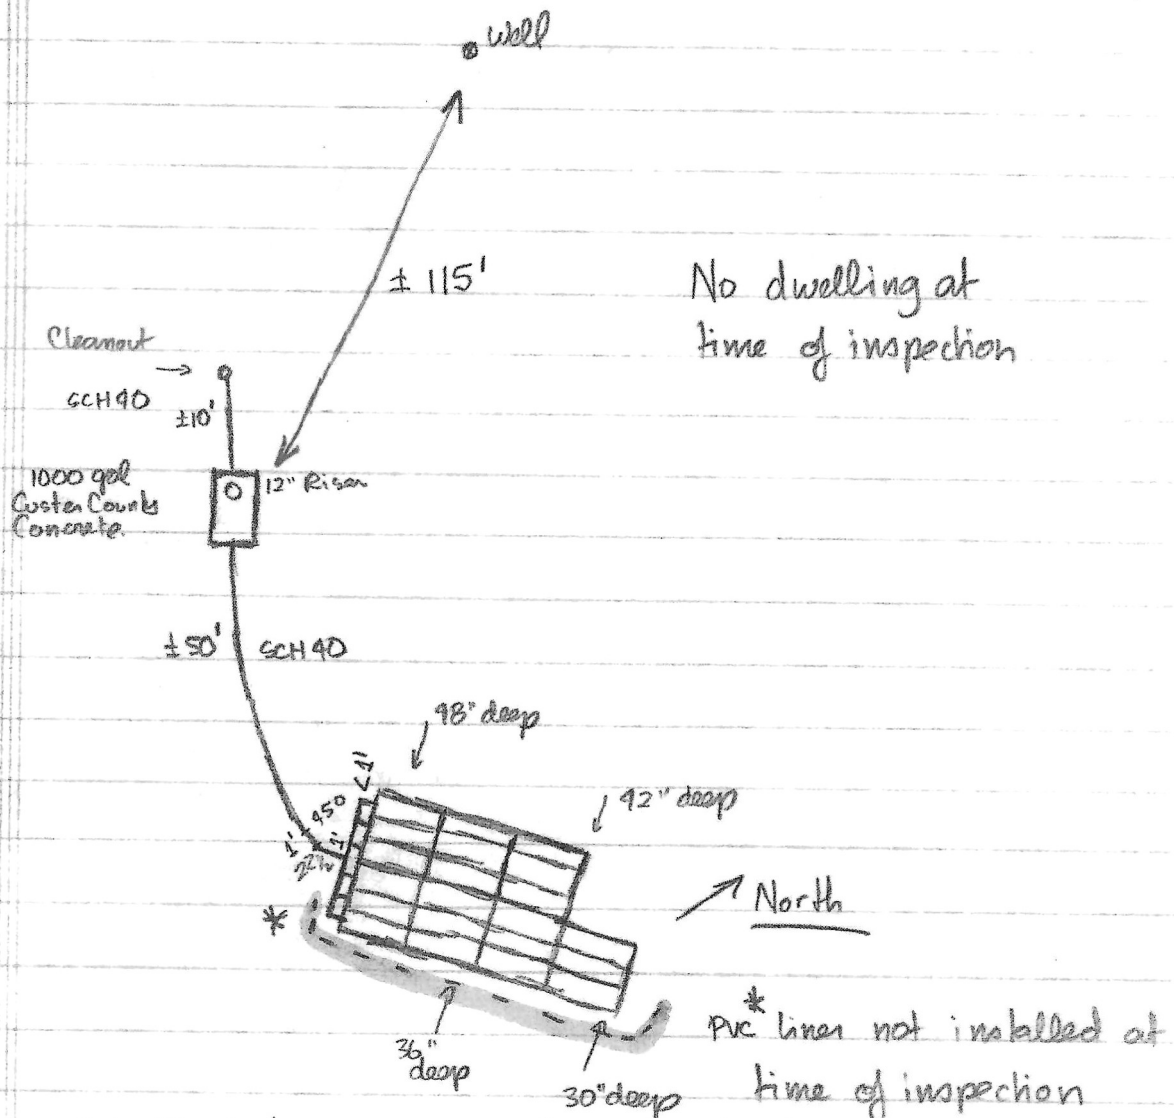 Well
± 115'
No dwelling at
time of inspection
Cleanout
SCH40
±10'
1000 gal
Custer County
Concrete.
12" Riser
±50'
SCH 40
48" deep
<1'
42" deep
45°
1'
1'
22½
North
*
36"
deep
30" deep
PVC* liner not installed at
time of inspection